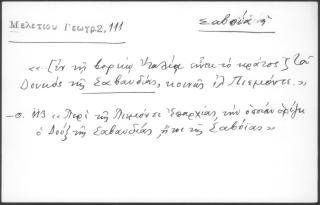 Μελετίου Γεωγρ², 111
Σαβοΐα
« Ἐν τῇ βορείῳ Ἰταλίᾳ εἶναι τὸ κράτος τοῦ
Δουκὸς τῆς Σαβαυδίας, κοινῶς ἰλ Πιεμόντε. »
— σ. 113 « Περὶ τῆς Πιεμόντε Ἐπαρχίας, τὴν ὁποίαν ὁρίζει
ὁ Δοὺξ τῆς Σαβαυδίας, ἤτοι τῆς Σαβόϊας »